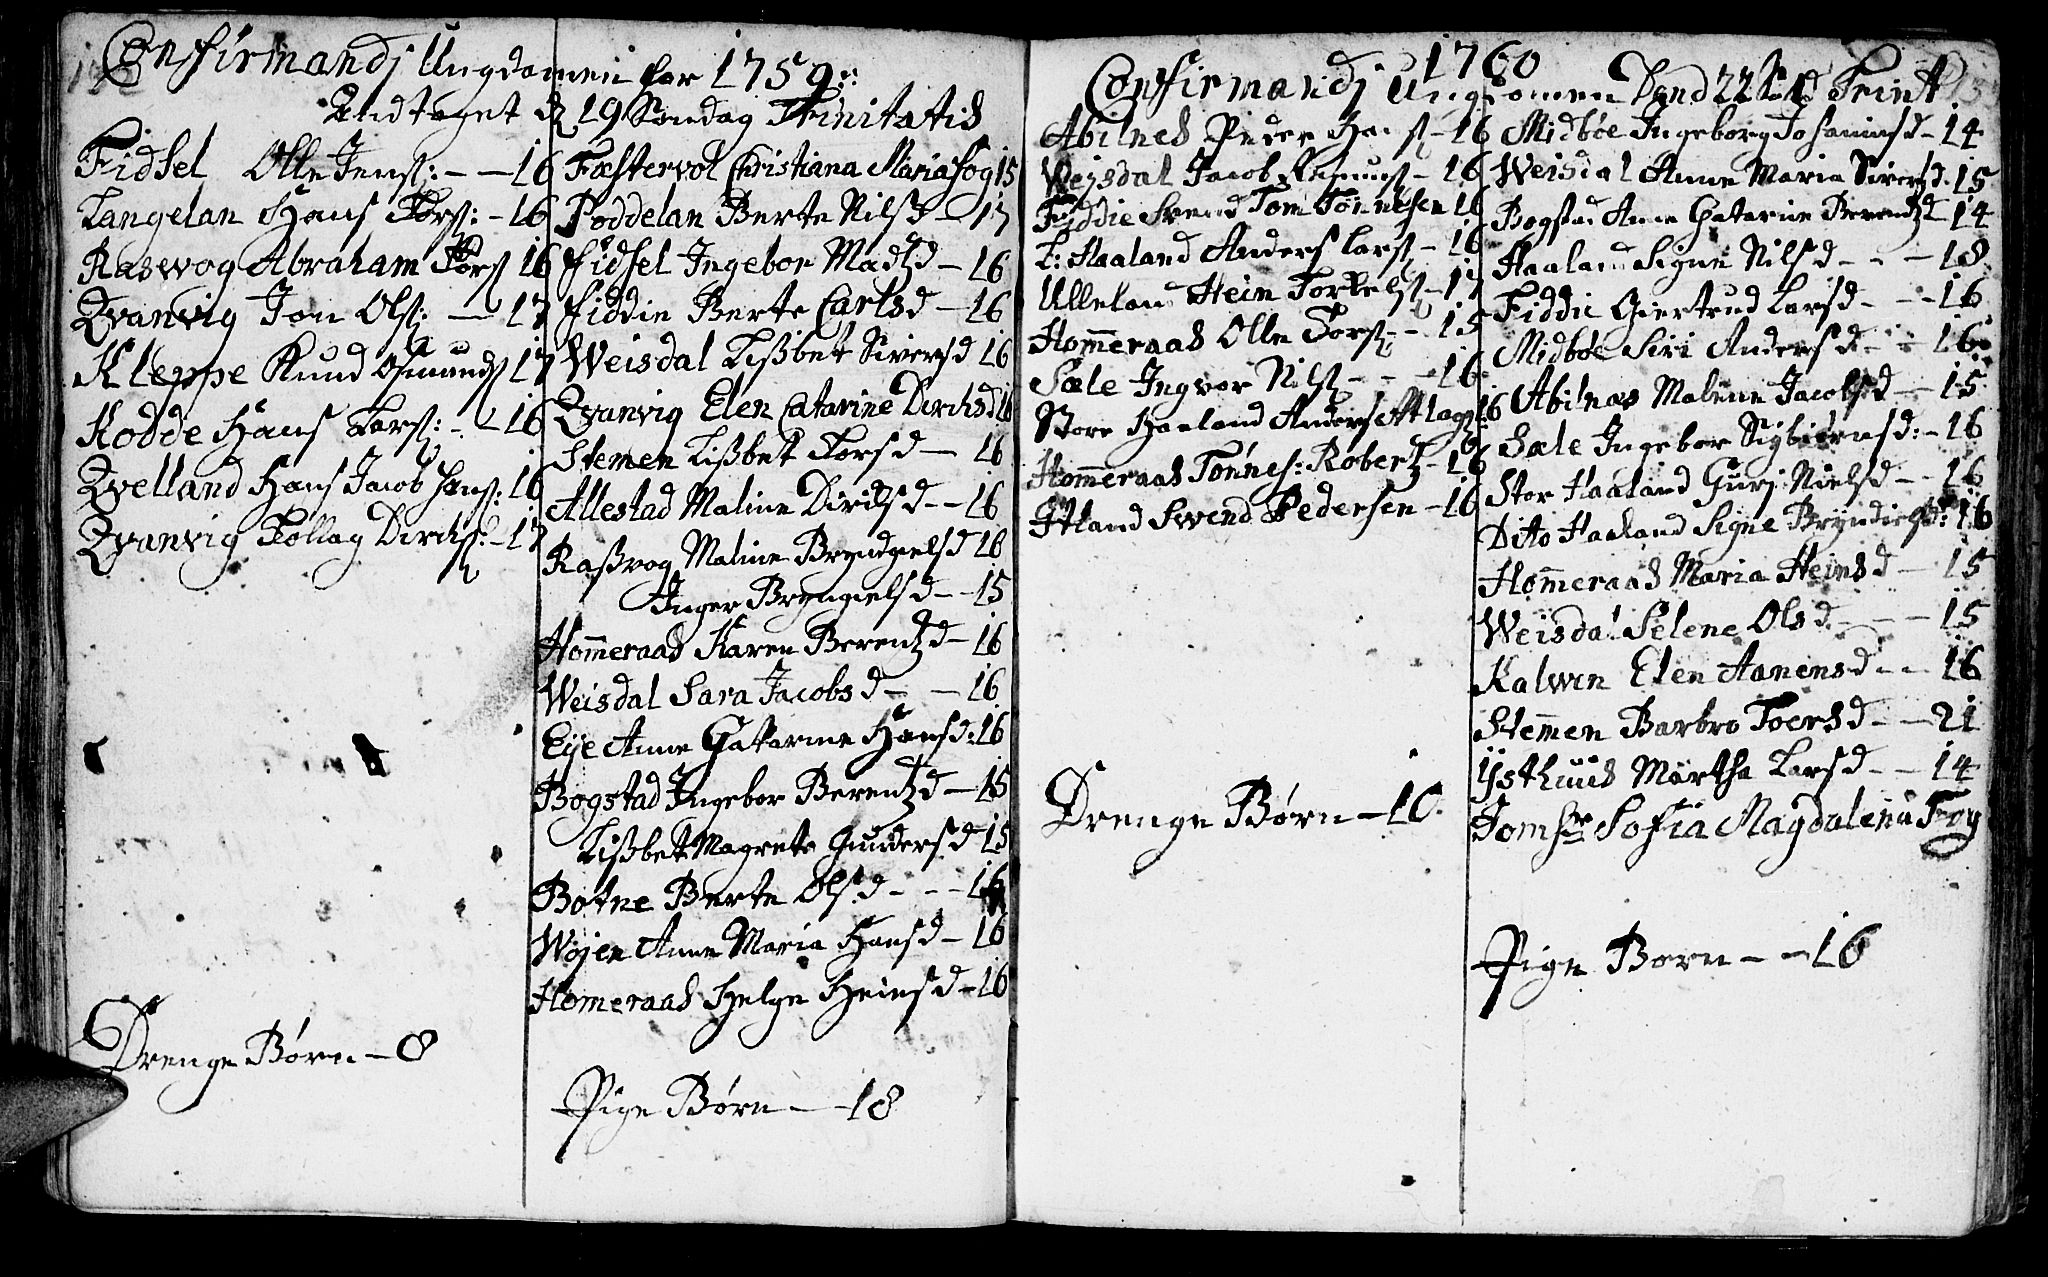 Confirmandj Ungdomen for 1759:
Andtaget d 19 Søndag Trinitatis
Fidsel Olle Jens: - - 16
Langelan Hans Tors: - 16
Raswog Abraham Tors 16
Qvanvig Jon Ols: - 17
Kleppe Knud Osmunds 17
Kodde Hans Lars: - - 16
Qvelland Hans Jacob Hans: 16
Qvanvig Tollag Dirchs: - 17
Drenge Børn - 8
Fæstervol Christiana Maria Fog 15
Foddelan Berte Nilsd - 17
Fidsel Ingebor Madtzd - 16
Fiddie Berte Carlsd - 16
Weisdal Lisbet Siversd 16
Qvanvig Elen Catarine Dirchsd 16
Stemen Lisbet Torsd - 16
Allestad Maline Dirksd - - 16
Rasvog Maline Bryngelsd 16
Inger Bryngielsd - - 15
Hom̄eraas Karen Berentzd - 16
Weisdal Sara Jacobsd - - 16
Eye Anne Catarine Hansd: 16
Bogstad Ingebor Berentzd - 15
Lisbet Magrete Gundersd 15
Botne Berte Ols:d - - - 16
Wøjen Anne Maria Hansd - 16
Homeraas Helge Heinsd - 16
Pige Børn - - 18
1760
Confirmandj Ungdomen Dend 22 S: Trint
Abilnes Peder Ha s - 16
Weisdal Jacob Rasmus - 16
Fiddie Svend Tom Tønnesen 16
L: Haaland Anders Lars - 16
Ullelan Hein Torkels - 17
Hom̄eraas Olle Tors - - 15
Sæle Ingvor Nils - - - 16
Store Haaland Anders Atlag 16
Hom̄eraas Tønnes: Robertz - 16
Itland Swend Pedersen - 16
Drenge Børn - 10.
Midbøe Ingeborg Johannsd - 14
Weisdal Anne Maria Siversd. 15
Bogstad Anne Catarine Berentzd 14
Haaland Signe Nilsd - - - 18
Fiddie Giertrud Larsd - - - 16
Midbøe Siri Andersd - - - 16
Abilnæs Malene Jacobsd - 15
Sæle Ingebor Sigbiørnsd: - 16
Stor Haaland Gurj Nielsd - - 16
Dito Haaland Signe Bryndielsd: 16
Hom̄eraas Maria Heinsd - 15
Weisdal Selene Olsd - - - 15
Kalwen Elen Aanensd - - 16
Stem̄en Barbro Toersd - - 21
Ysthuus Martha Larsd - - 14
Jomfr Sofia Magdalena Fog
Pige Børn - - 16